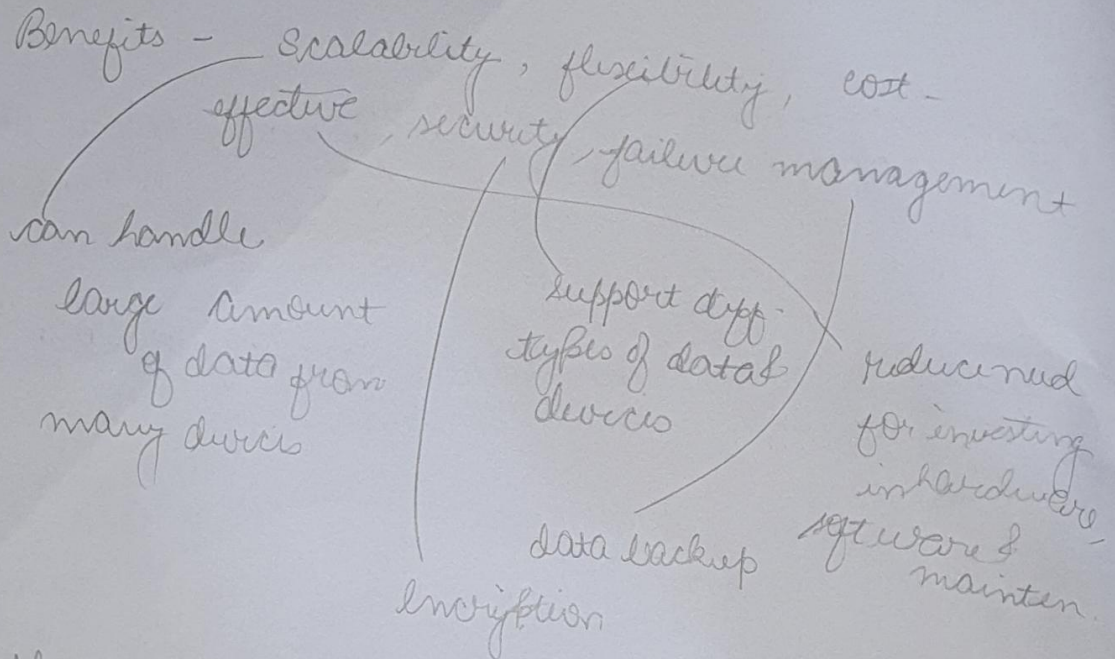 Benefits - Scalability, flexibility, cost-
effective, security, failure management
can handle
large amount
of data from
many devices
support diff.
types of data &
devices
reduce need
for investing
in hardware,
software &
mainten.
data backup
encryption